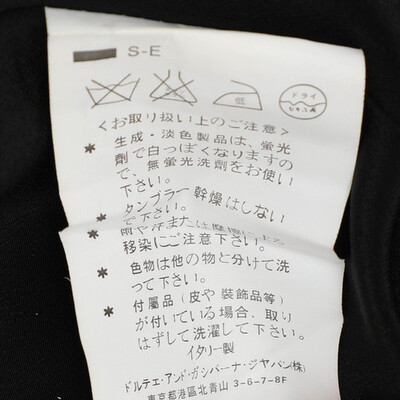 S-E
低
ドライ
セキユ系
<お取り扱い上のご注意>
* 生成・淡色製品は、蛍光
剤で白っぽくなりますの
で、無蛍光洗剤をお使い
下さい。
* タンブラー乾燥はしない
で下さい。
* 雨や汗または摩擦による
移染にご注意下さい。
* 色物は他の物と分けて洗
って下さい。
* 付属品(皮や装飾品等)
が付いている場合、取り
はずして洗濯して下さい。
イタリー製
ドルチエ・アンド・ガバーナ・ジャパン(株)
東京都港区北青山 3-6-7-8F